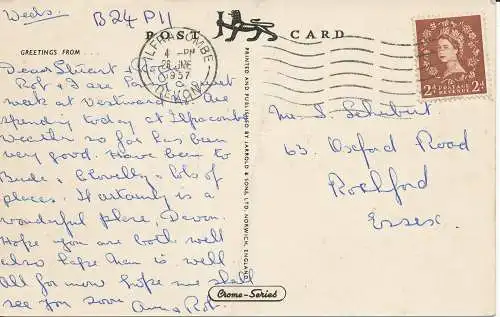 Weds.
B24 P11
POST CARD
GREETINGS FROM
ILFRACOMBE
4 - PM
26 JNE
1957
DEVON
2D POSTAGE REVENUE 2D
Dear Stuart +
Rot + I are
week at Westward. Are
spending today at Ilfracombe
Weather so far has been
very good. Have been to
Bude, Clovelly + lots of
places. It certainly is a
wonderful place, Devon.
Hope you are both well
also hope is well
All for now hope we shall
see you soon
PRINTED AND PUBLISHED BY JARROLD & SONS LTD. NORWICH, ENGLAND
Crome-Series
Mr. S. Schubert
63. Oxford Road
Rochford
Essex.